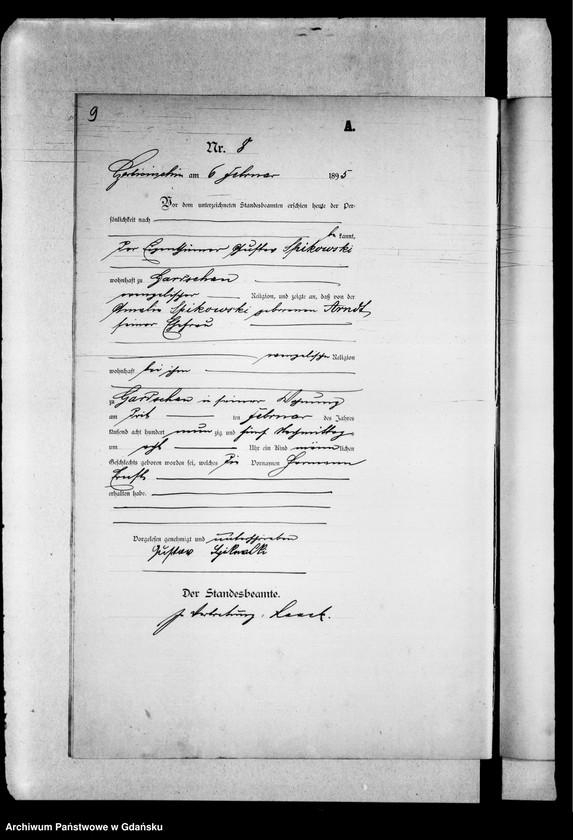 9
A.
Nr. 8
am 6 Februar 1895
Vor dem unterzeichneten Standesbeamten erschien heute der Per-
sönlichkeit nach
be kannt,
Der Eigenthümer Gustav Spikowski
wohnhaft zu Gartschau
evangelischer Religion, und zeigte an, daß von der
Amalie Spikowski geborenen Arndt
seiner Ehefrau
evangelischer Religion
wohnhaft bei ihm
zu Gartschau in seiner Wohnung
am ten Februar des Jahres
tausend acht hundert neun zig und fünf Nachmittag
um acht Uhr ein Kind männlichen
Geschlechts geboren worden sei, welches Vornamen Hermann
Ernst
erhalten habe.
Vorgelesen genehmigt und unterschrieben
Gustav
Der Standesbeamte.
In Vertretung.
Archiwum Państwowe w Gdańsku